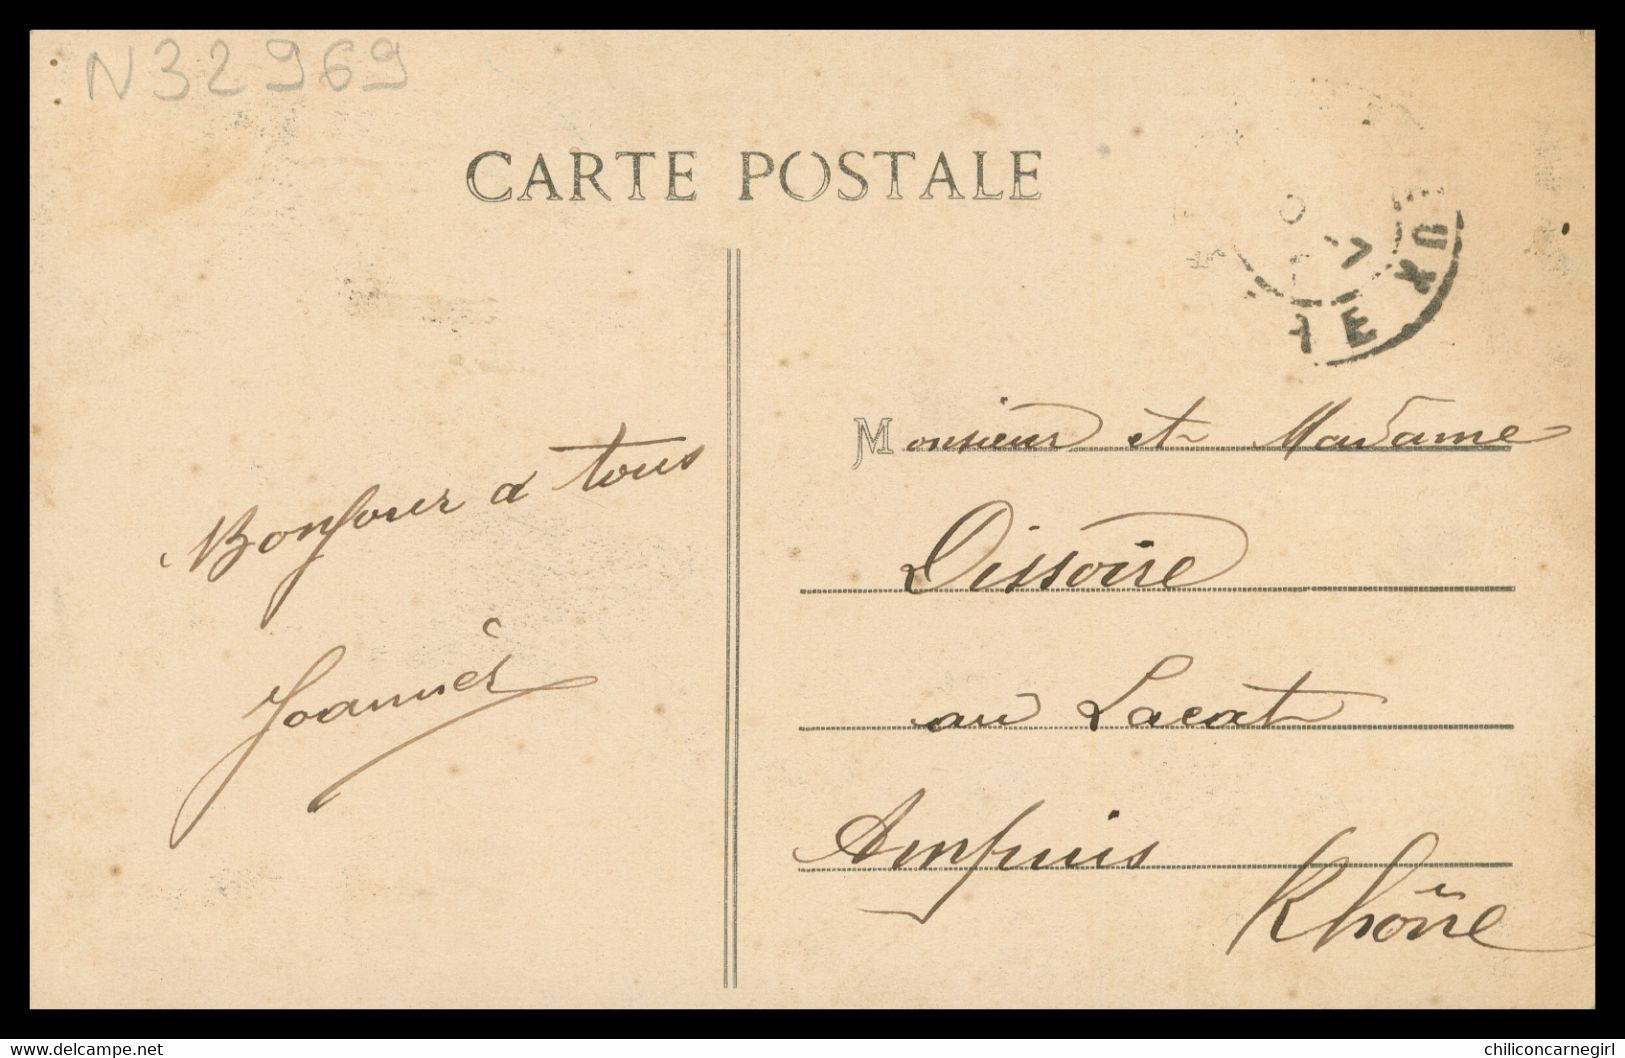 N32969
CARTE POSTALE
Bonjour a tous
Joannès
Monsieur et Madame
Dissoire
au Lacat
Ampuis
Rhône
www.delcampe.net
chiliconcarnegirl